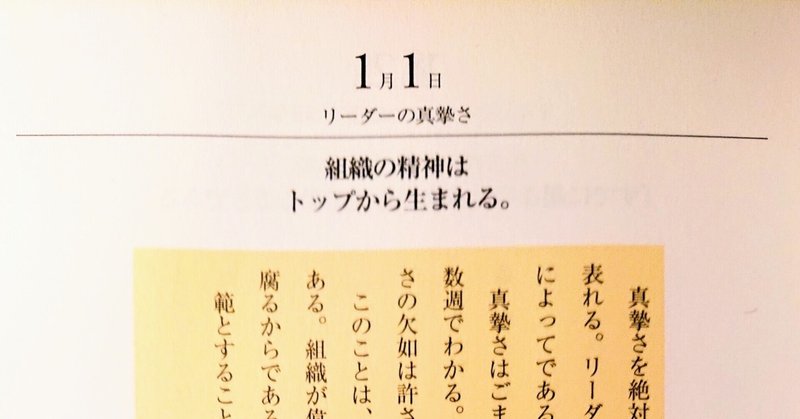 1月1日
リーダーの真摯さ
組織の精神は
トップから生まれる。
真摯さを絶対
表れる。リーダ
によってである
真摯さはごま
数週でわかる。
さの欠如は許さ
このことは、
ある。組織が偉
腐るからである
範とすること